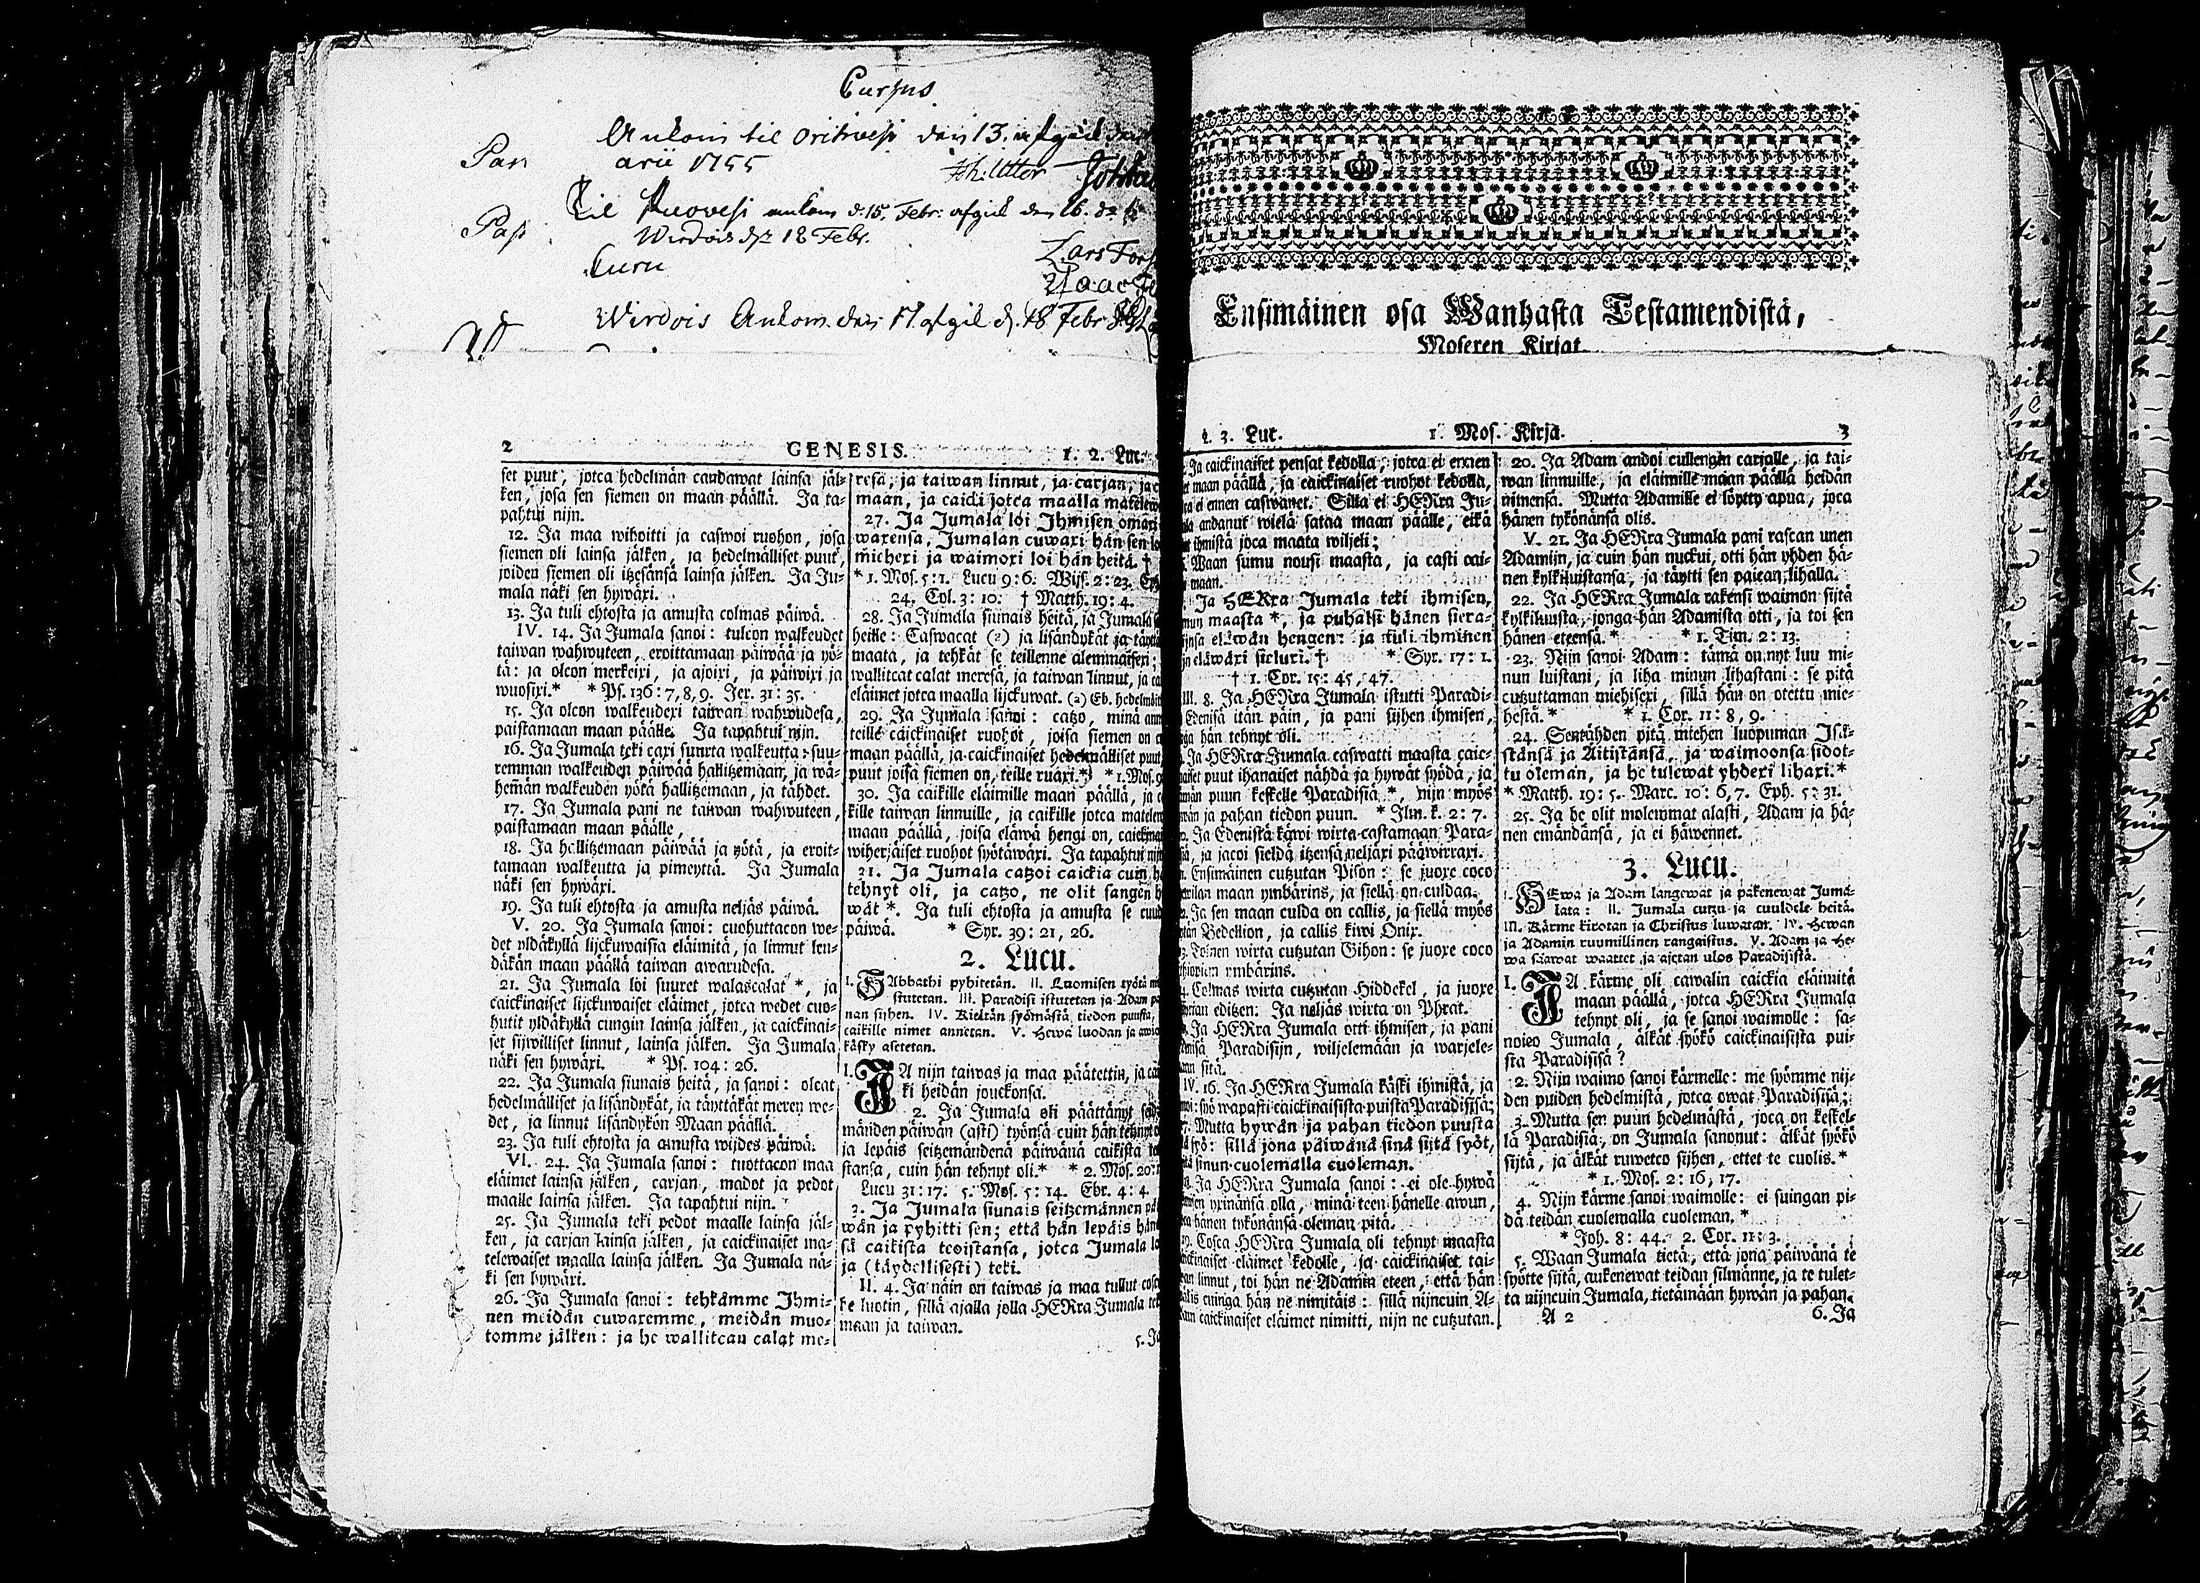 Cursus
Ankom til Orihvesi den 13. afgick
arii 1755
Til Ruovesi ankom d. 15. Febr: afgick den 16. do
Wirdois 18 Febr.
Curu
Lars
Wirdois Ankom den 17 afgik d. 18 Febr
2 GENESIS. 1. 2. Luc.
set puut, jotca hedelmän candawat lainsa jäl-
ken, josa sen siemen on maan päällä. Ja ta-
pahtui nijn.
12. Ja maa wihoitti ja caswoi ruohon, josa
siemen oli lainsa jälken, ja hedelmälliset puut,
joiden siemen oli itzesänsä lainsa jälken. Ja Ju-
mala näki sen hywäxi.
13. Ja tuli ehtosta ja amusta colmas päiwä.
IV. 14. Ja Jumala sanoi: tulcon walkeudet
taiwan wahwuteen, eroittamaan päiwää ja yö-
tä: ja olcon merkeixi, ja ajoixi, ja päiwixi ja
wuosixi.* * Ps. 136: 7, 8, 9. Jer. 31: 35.
15. Ja olcon walkeudexi taiwan wahwudesa,
paistamaan maan päälle. Ja tapahtui nijn.
16. Ja Jumala teki caxi suurta walkeutta: suu-
remman walkeuden päiwää hallitzemaan, ja wä-
hemän walkeuden yötä hallitzemaan, ja tähdet.
17. Ja Jumala pani ne taiwan wahwuteen,
paistamaan maan päälle,
18. Ja hallitzemaan päiwää ja yötä, ja eroit-
tamaan walkeutta ja pimeyttä. Ja Jumala
näki sen hywäxi.
19. Ja tuli ehtosta ja amusta neljäs päiwä.
V. 20. Ja Jumala sanoi: cuohuttacon we-
det yldäkyllä lijckuwaisia eläimitä, ja linnut len-
däkän maan päällä taiwan awarudesa.
21. Ja Jumala loi suuret walascalat *, ja
caickinaiset lijckuwaiset eläimet, jotca wedet cuo-
hutit yldäkyllä cungin lainsa jälken, ja caickinai-
set sijwilliset linnut, lainsa jälken. Ja Jumala
näki sen hywäxi. * Ps. 104: 26.
22. Ja Jumala siunais heitä, ja sanoi: olcat
hedelmälliset ja lisändykät, ja täyttäkät meren we-
det, ja linnut lisändykön Maan päällä.
23. Ja tuli ehtosta ja amusta wijdes päiwä.
VI. 24. Ja Jumala sanoi: tuottacon maa
eläimet lainsa jälken, carjan, madot ja pedot
maalle lainsa jälken. Ja tapahtui nijn.
25. Ja Jumala teki pedot maalle lainsa jäl-
ken, ja carjan lainsa jälken, ja caickinaiset ma-
telewaiset maalla lainsa jälken. Ja Jumala nä-
ki sen hywäxi.
26. Ja Jumala sanoi: tehkämme Ihmi-
nen meidän cuwaremme, meidän muo-
tomme jälken: ja he wallitcan calat me-
resä, ja taiwan linnut, ja carjan,
maan, ja caicki jotca maalla
27. Ja Jumala loi Ihmisen
warensa, Jumalan cuwaxi hän sen
miehexi ja waimoxi loi hän heitä. †
* 1. Mos. 5: 1. Lucu 9: 6. Wijs. 2: 23.
24. Col. 3: 10. † Matth. 19: 4.
28. Ja Jumala siunais heitä, ja Jumala
heille: Caswacat (2) ja lisändykät ja
maata, ja tehkät se teillenne alemmaisexi;
wallitcat calat meresä, ja taiwan linnut, ja
eläimet jotca maalla lijckuwat. (2) Eb.
29. Ja Jumala sanoi: catzo, minä
teille caickinaiset ruohot, joisa siemen on
maan päällä, ja caickinaiset hedelmälliset
puut joisa siemen on, teille ruaxi.* * 1. Mos.
30. Ja caikille eläimille maan päällä, ja
kille taiwan linnuille, ja caikille jotca
maan päällä, joisa eläwä hengi on,
wiherjäiset ruohot syötäwäxi. Ja tapahtui
31. Ja Jumala catzoi caickia cuin
tehnyt oli, ja catzo, ne olit sangen
wät *. Ja tuli ehtosta ja amusta se
päiwä. * Syr. 39: 21, 26.
2. Lucu.
I. SAbbathi pyhitetän. II. Luomisen työtä
stutetan. III. Paradisi istutetan ja Adam
nan sijhen. IV. Kieltän syömästä tiedon puusta,
caikille nimet annetan. V. Hewa luodan ja
käsky asetetan.
I. JA nijn taiwas ja maa päätettin, ja
ki heidän jouckonsa.
2. Ja Jumala oli päättänyt
mänden päiwän (asti) työnsä cuin hän
ja lepäis seitzemändenä päiwänä caikista
stansa, cuin hän tehnyt oli.* * 2. Mos. 20:
Lucu 31: 17. 5. Mos. 5: 14. Ebr. 4: 4.
3. Ja Jumala siunais seitzemännen
wän ja pyhitti sen; että hän lepäis
sä caikista teoistansa, jotca Jumala
ja (täydellisesti) teki.
II. 4. Ja näin on taiwas ja maa tullut
ke luotin, sillä ajalla jolla HERra Jumala
maan ja taiwan.
Ensimäinen osa Wanhasta Testamendistä,
Moseren Kirjat
2. 3. Luc. 1. Mos. Kirja. 3
Ja caickinaiset pensat kedolla, jotca ei ennen
maan päällä, ja caickinaiset ruohot kedolla,
ei ennen caswanet. Sillä ei HERra Ju-
andanut wielä sataa maan päälle, eikä
ihmistä joca maata wiljeli;
Waan sumu nousi maasta, ja casti cai-
maan.
Ja HERra Jumala teki ihmisen,
maasta *, ja puhalsi hänen siera-
eläwän hengen: ja tuli ihminen
eläwäxi sieluxi. † * Syr. 17: 1.
† 1. Cor. 15: 45, 47.
III. 8. Ja HERra Jumala istutti Paradi-
Edenisä itän päin, ja pani sijhen ihmisen,
hän tehnyt oli.
Ja HERra Jumala caswatti maasta caic-
puut ihanaiset nähdä ja hywät syödä, ja
puun keskelle Paradisiä *, nijn myös
ja pahan tiedon puun. * Ilm. k. 2: 7.
Ja Edenistä käwi wirta castamaan Para-
ja jacoi sieldä itzensä neljäxi pääwirraxi.
Ensimäinen cutzutan Pison: se juoxe coco
maan ymbärins, ja siellä on culdaa.
Ja sen maan culda on callis, ja siellä myös
Bedellion, ja callis kiwi Onix.
Toinen wirta cutzutan Gihon: se juoxe coco
ymbärins.
Colmas wirta cutzutan Hiddekel, ja juoxe
editzen: Ja neljäs wirta on Phrat.
Ja HERra Jumala otti ihmisen, ja pani
Paradisijn, wiljelemään ja warjele-
sitä.
IV. 16. Ja HERra Jumala käski ihmistä, ja
syö wapasti caickinaisista puista Paradisisä;
Mutta hywän ja pahan tiedon puusta
syö: sillä jona päiwänä sinä sijtä syöt,
sinun cuolemalla cuoleman.
Ja HERra Jumala sanoi: ei ole hywä
yxinänsä olla, minä teen hänelle awun,
hänen tykönänsä oleman pitä.
Cosca HERra Jumala oli tehnyt maasta
eläimet kedolle, ja caickinaiset tai-
linnut, toi hän ne Adamin eteen, että hän
cuinga hän ne nimitäis: sillä nijncuin A-
caickinaiset eläimet nimitti, nijn ne cutzutan.
20. Ja Adam andoi cullengin carjalle, ja tai-
wan linnuille, ja eläimille maan päällä heidän
nimensä. Mutta Adamille ei löytty apua, joca
hänen tykönänsä olis.
V. 21. Ja HERra Jumala pani rascan unen
Adamijn, ja cuin hän nuckui, otti hän yhden hä-
nen kylkiluistansa, ja täytti sen paican lihalla.
22. Ja HERra Jumala rakensi waimon sijtä
kylkiluusta, jonga hän Adamista otti, ja toi sen
hänen eteensä.* * 1. Tim. 2: 13.
23. Nijn sanoi Adam: tämä on nyt luu mi-
nun luistani, ja liha minun lihastani: se pitä
cutzuttaman miehisexi, sillä hän on otettu mie-
hestä.* * 1. Cor. 11: 8, 9.
24. Sentähden pitä miehen luopuman Isä-
stänsä ja Äitistänsä, ja waimoonsa sidot-
tu oleman, ja he tulewat yhdexi lihaxi.*
* Matth. 19: 5. Marc. 10: 6, 7. Eph. 5: 31.
25. Ja he olit molemmat alasti, Adam ja hä-
nen emändänsä, ja ei häwennet.
3. Lucu.
I. HEwa ja Adam langewat ja pakenewat Juma-
lata: II. Jumala cutzu ja cuuldele heitä.
III. Kärme kirotan ja Christus luwatan. IV. Hewan
ja Adamin ruumillinen rangaistus. V. Adam ja He-
wa saawat waattet ja ajetan ulos Paradisistä.
I. JA kärme oli cawalin caickia eläimitä
maan päällä, jotca HERra Jumala
tehnyt oli, ja se sanoi waimolle: sa-
noico Jumala, älkät syökö caickinaisista pui-
sta Paradisisä?
2. Nijn waimo sanoi kärmelle: me syömme nij-
den puiden hedelmistä, jotca owat Paradisisä;
3. Mutta sen puun hedelmästä, joca on keskel-
lä Paradisiä, on Jumala sanonut: älkät syökö
sijtä, ja älkät ruwetco sijhen, ettet te cuolis.*
* 1. Mos. 2: 16, 17.
4. Nijn kärme sanoi waimolle: ei suingan pi-
dä teidän cuolemalla cuoleman.*
* Joh. 8: 44. 2. Cor. 11: 3.
5. Waan Jumala tietä, että jona päiwänä te
syötte sijtä, aukenewat teidän silmänne, ja te tulet-
ta nijncuin Jumala, tietämään hywän ja pahan.
A 2 6. Ja